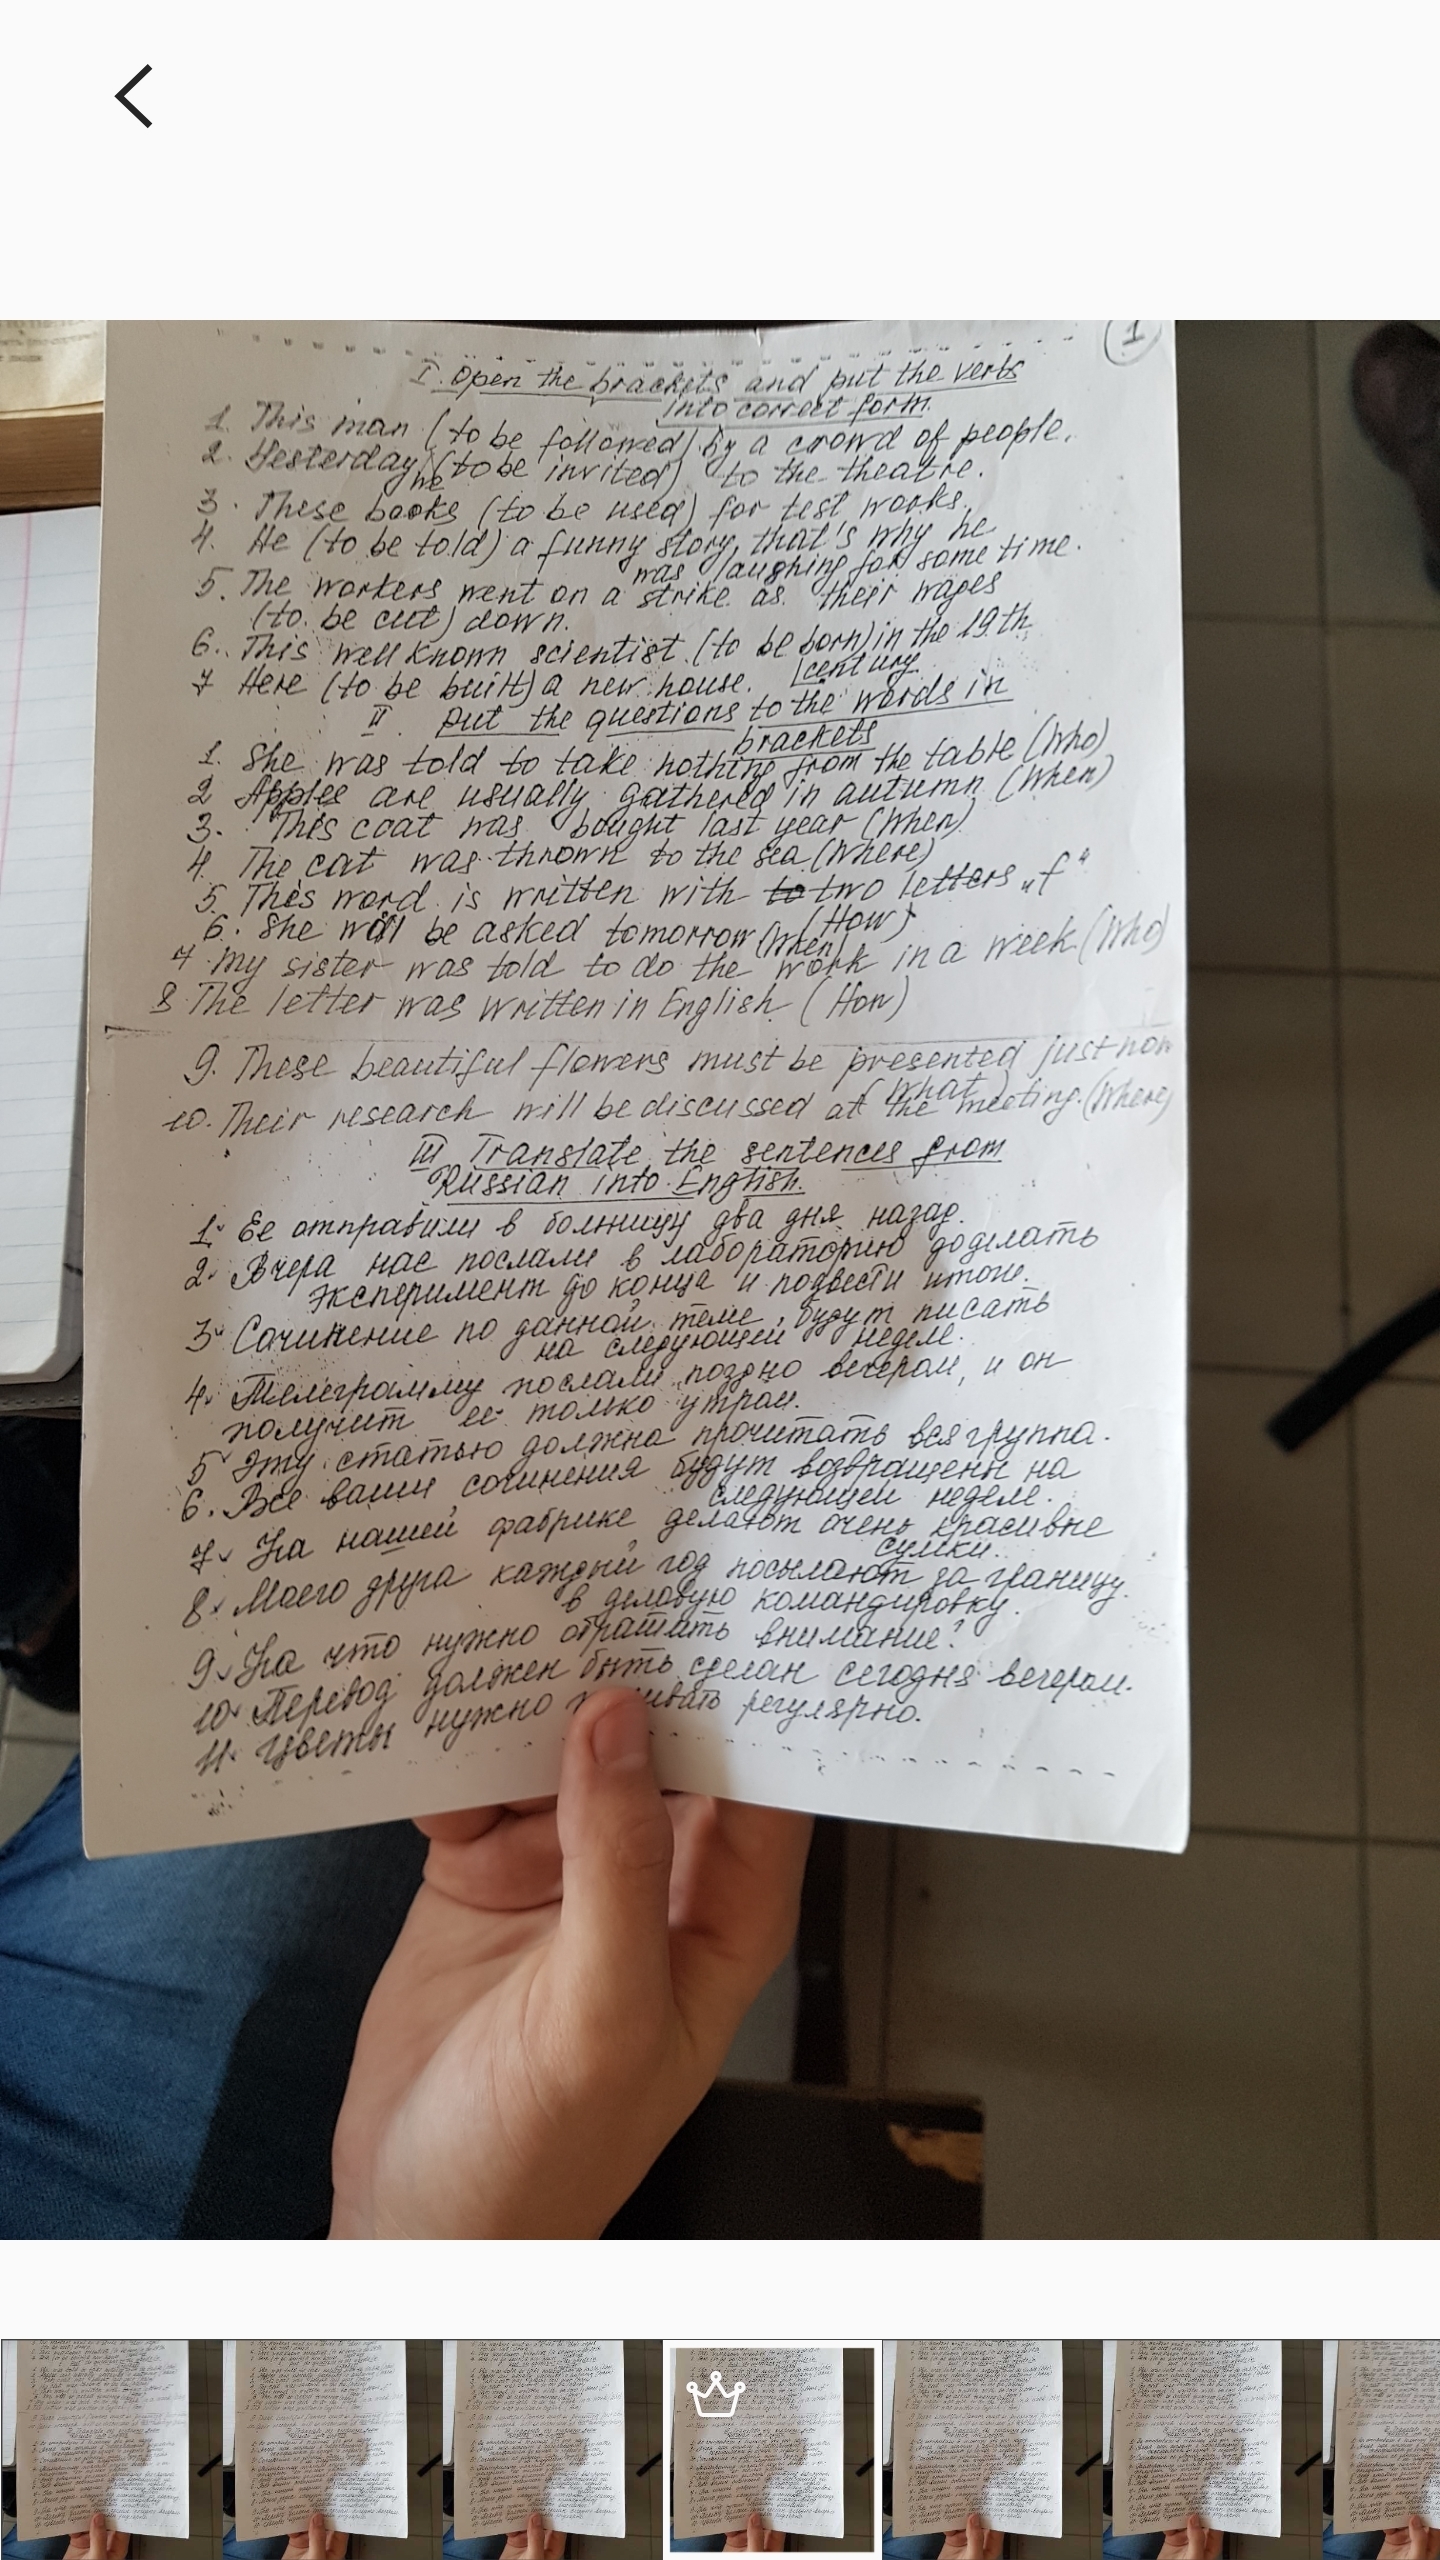 1
I. Open the brackets and put the verbs
into correct form.
1. This man (to be followed) by a crowd of people.
2. Yesterday he (to be invited) to the theatre.
3. These books (to be used) for test works.
4. He (to be told) a funny story, that's why he
was laughing for some time.
5. The workers went on a strike as their wages
(to be cut) down.
6. This well known scientist (to be born) in the 19th
century.
7 Here (to be built) a new house.
II. Put the questions to the words in
brackets
1. She was told to take nothing from the table (Who)
2 Apples are usually gathered in autumn (When)
3. This coat was bought last year (When)
4. The cat was thrown to the sea (Where)
5. This word is written with to two letters „f"
(How)
6. She will be asked tomorrow (When)
7 My sister was told to do the work in a week (Who)
8 The letter was written in English (How)
9. These beautiful flowers must be presented just now
(What)
10. Their research will be discussed at the meeting. (Where)
III Translate the sentences from
Russian into English.
1. Ее отправили в больницу два дня назад.
2. Вчера нас послали в лабораторию доделать
эксперимент до конца и подвести итоги.
3 Сочинение по данной теме будут писать
на следующей неделе.
4. Телеграмму послали поздно вечером, и он
получит ее только утром.
5 Эту статью должна прочитать вся группа.
6. Все ваши сочинения будут возвращены на
следующей неделе.
7. На нашей фабрике делают очень красивые
сумки.
8. Моего друга каждый год посылают за границу
в деловую командировку.
9. На что нужно обращать внимание?
10. Перевод должен быть сделан сегодня вечером.
11. Цветы нужно регулярно.